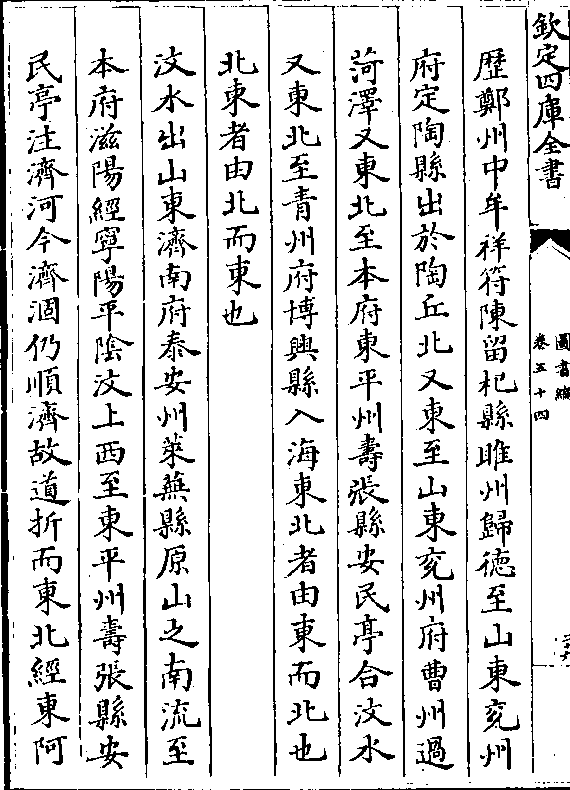 欽定四庫全書
圖書編
卷五十四
歷鄭州中牟祥符陳留杞縣睢州歸德至山東兖州
府定陶縣出於陶丘北又東至山東兖州府曹州過
菏澤又東北至本府東平州壽張縣安民亭合汶水
又東北至青州府博興縣入海東北者由東而北也
北東者由北而東也
汶水出山東濟南府泰安州萊蕪縣原山之南流至
本府滋陽經寧陽平隂汶上西至東平州壽張縣安
民亭注濟河今濟涸仍順濟故道折而東北經東阿